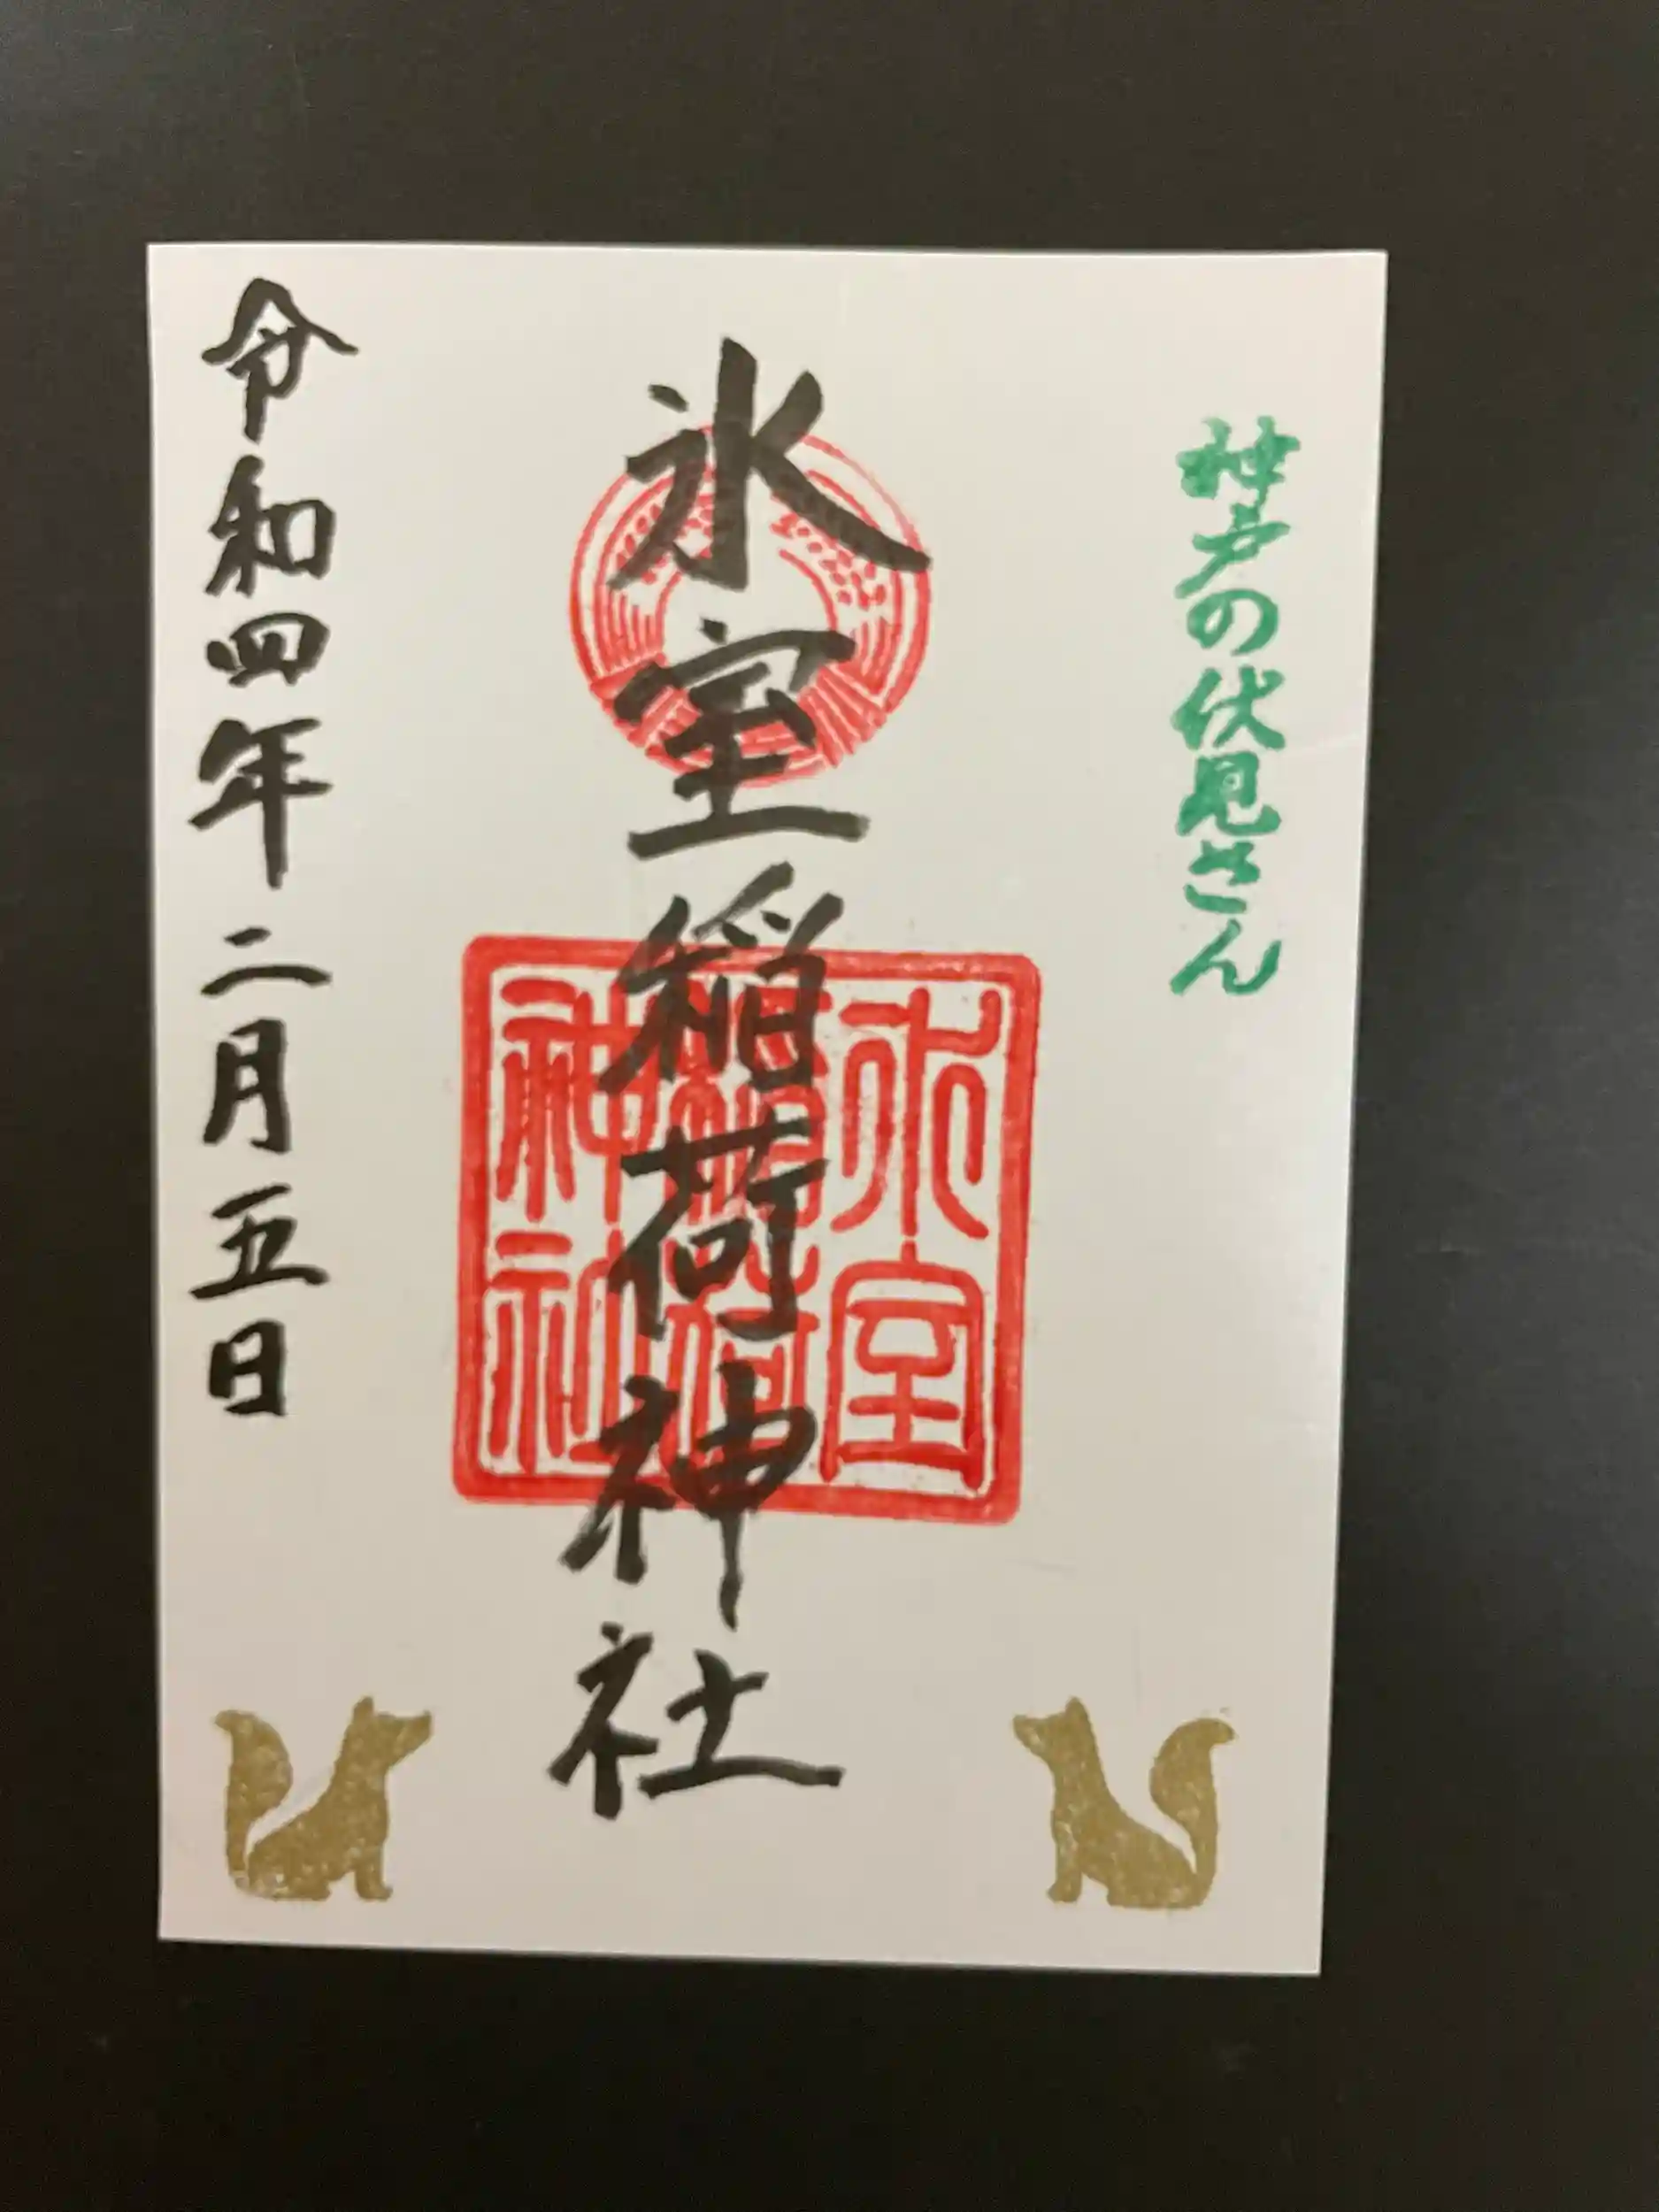 神戸の伏見さん
氷室稲荷神社
氷室
稲荷
神社
令和四年二月五日